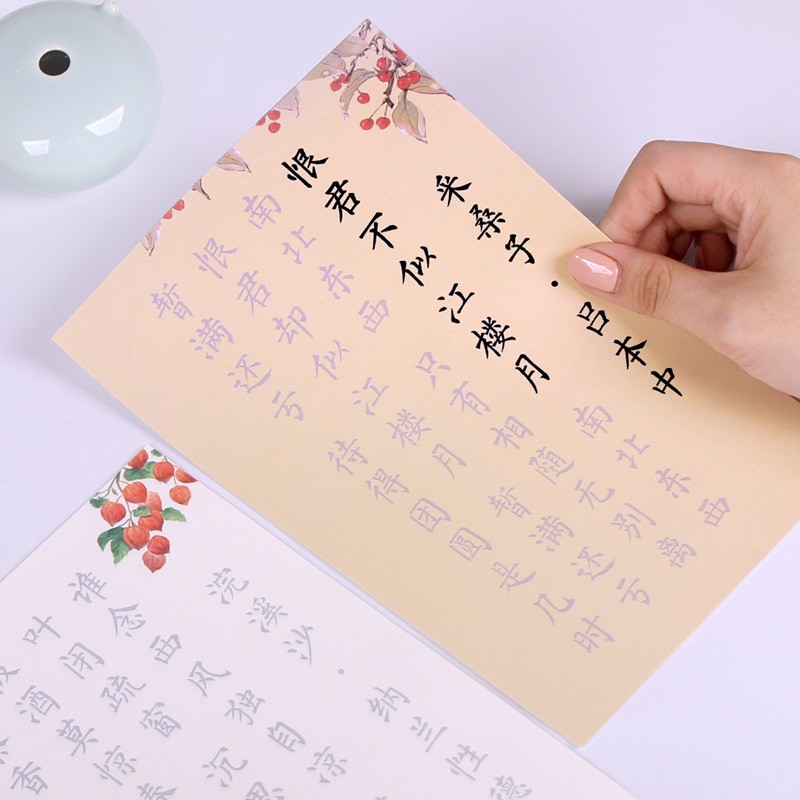 采桑子·吕本中
恨君不似江楼月 南北东西
南北东西 只有相随无别离
恨君却似江楼月 暂满还亏
暂满还亏 待得团圆是几时
浣溪沙·纳兰性德
谁念西风独自凉
叶闭疏窗 沉思
酒莫惊春
香